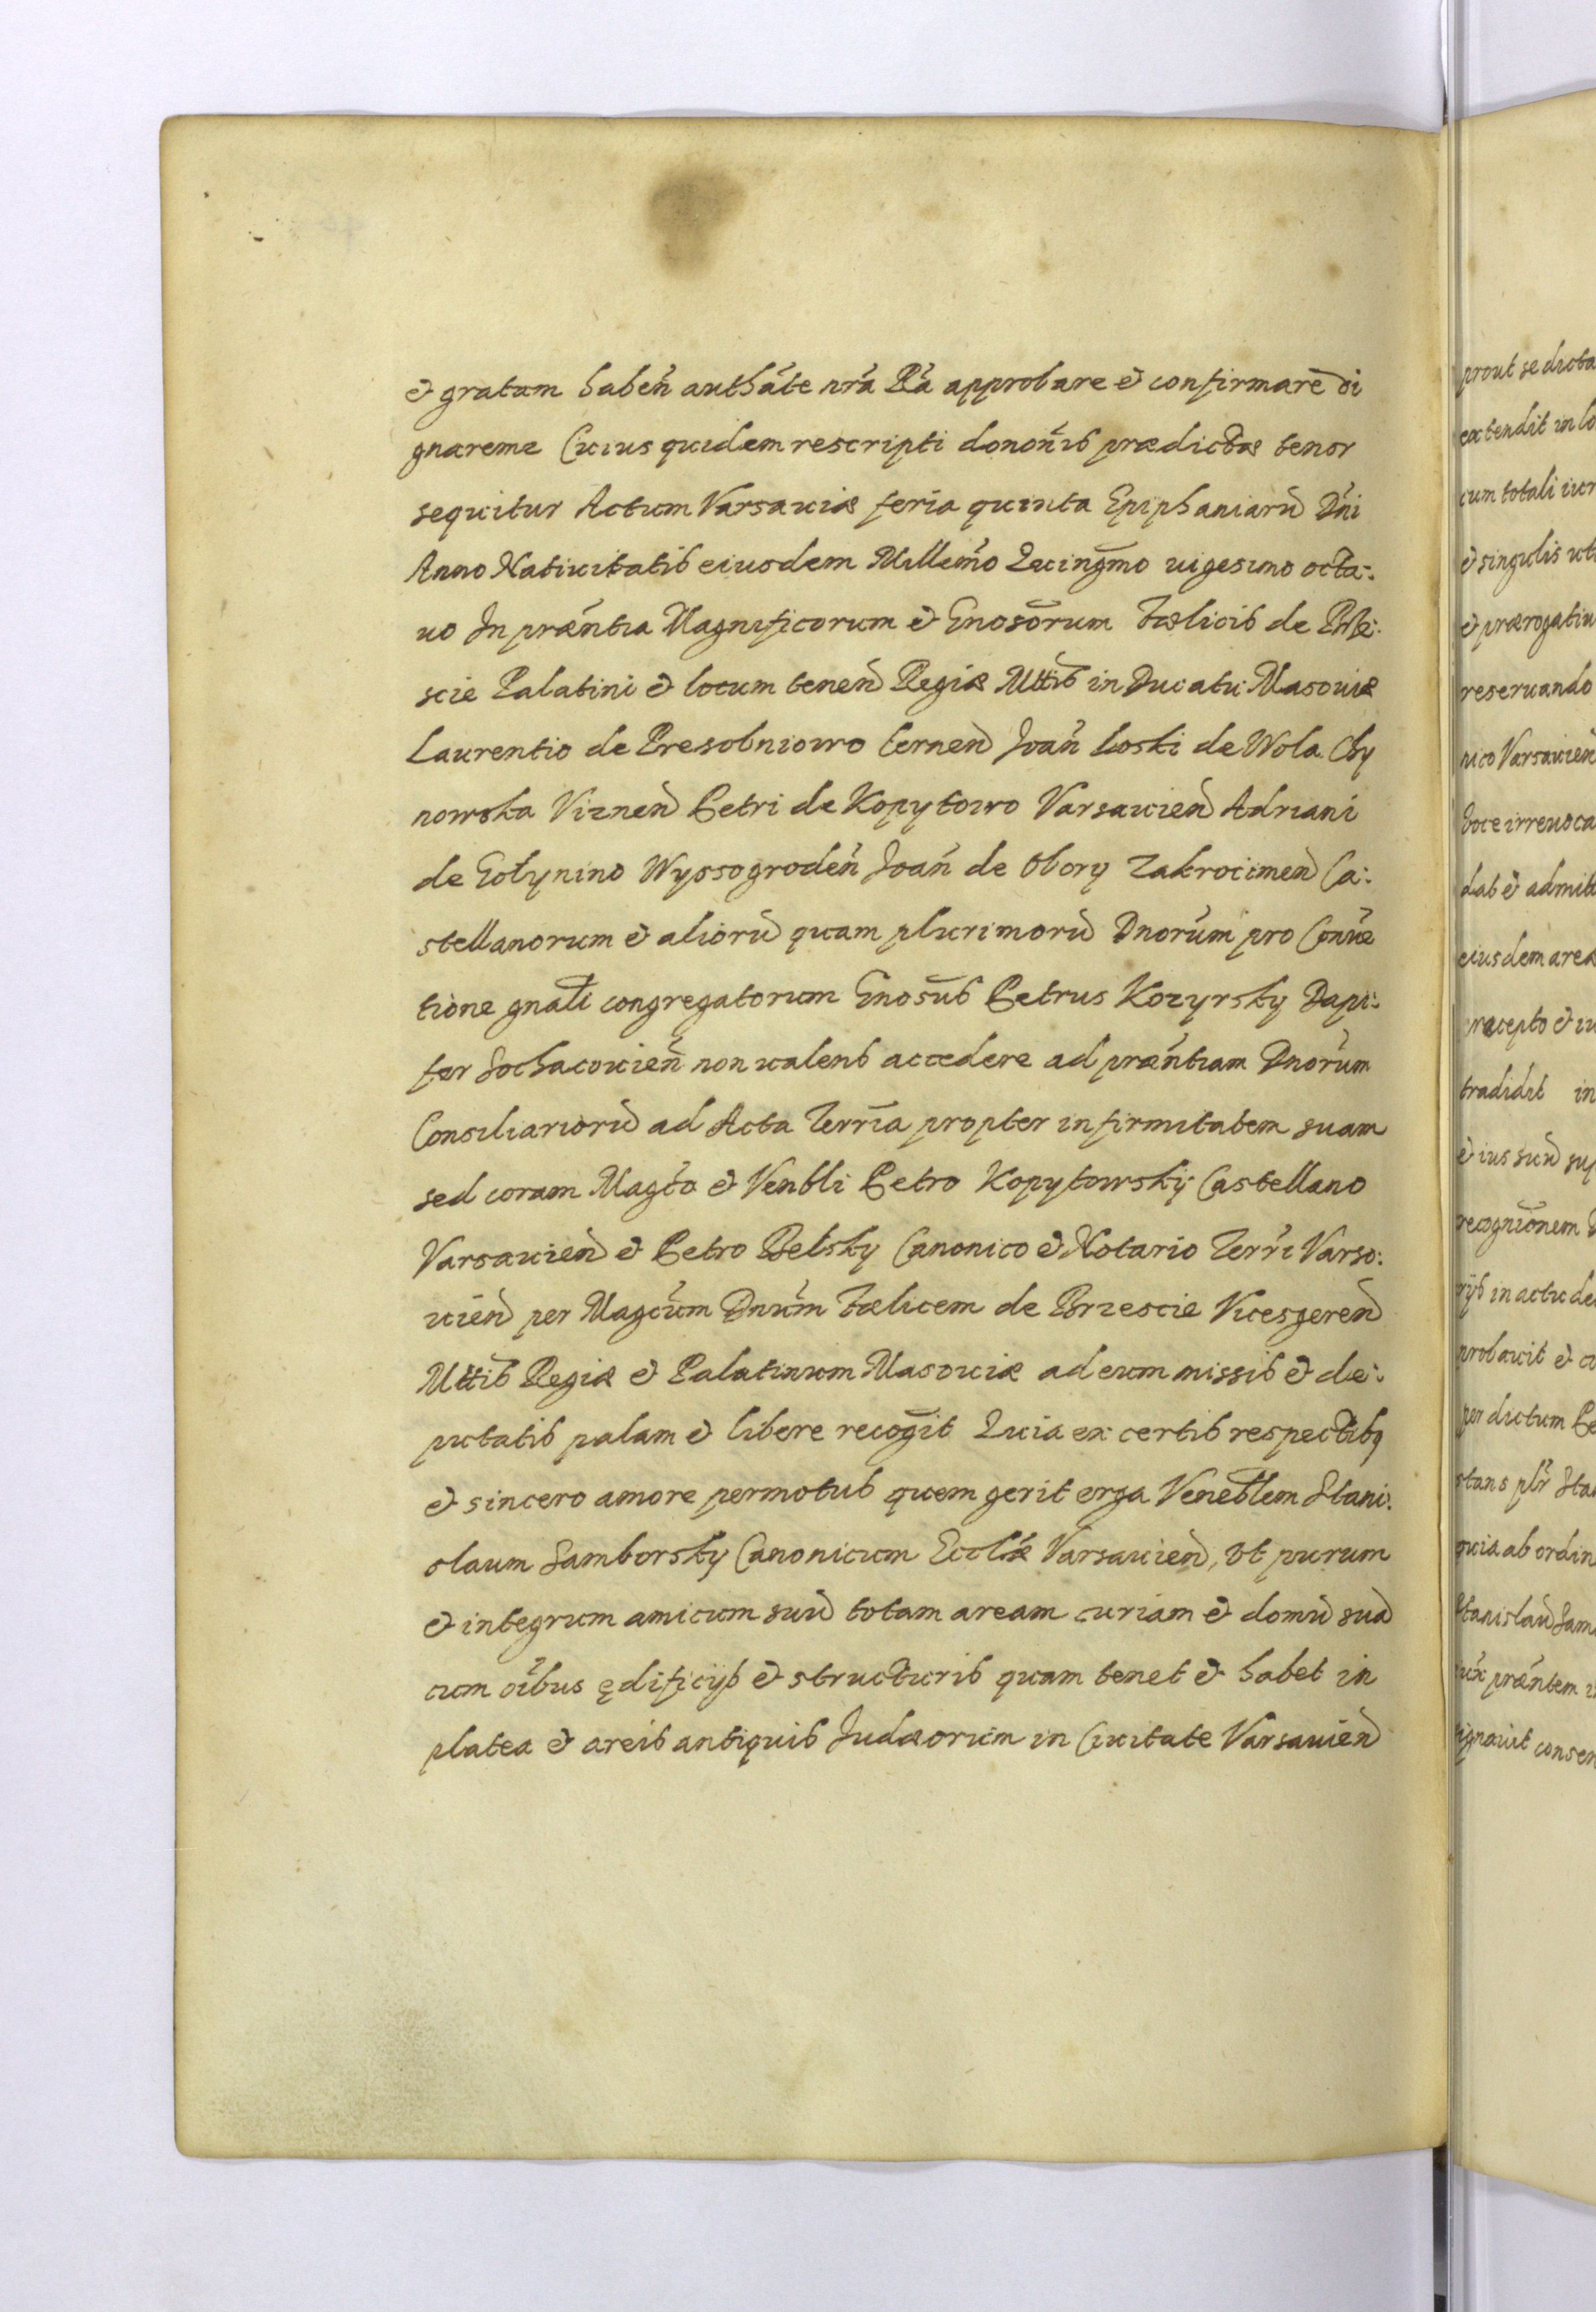 & gratam haben̄ authāte nr̃a R̃a approbare & confirmare di
gnaremr Cuius quidem rescripti donoñis prædictæ tenor
sequitur Actum Varsauiæ feria quinta Epiphaniarũ Dñi
Anno Natiuitatis eiusdem Millem̃o Quingm̃o uigesimo octa:
uo In præn̄tia Magnificorum & Gnosōrum Fælicis de Brze:
scie Palatini & locum tenen̄ Regiæ Mttis̄ in Ducatu Masouiæ
Laurentio de Presobniowo Cernen̄ Joan̄ Loski de Wola Chy
nowska Viznen̄ Petri de Kopytowo Varsauien̄ Adriani
de Gołynino Wyssogroden̄ Joan̄ de Obory Zakrocimen̄ Ca:
stellanorum & aliorũ quam plurimorũ Dnor̃um pro Conuẽ
tione gnāli congregatorum Gnosūs Petrus Kozyrsky Dapi:
fer Sochacouien̄ non ualens accedere ad præn̄tiam Dnor̃um
Consiliariorũ ad Acta Terrīa propter infirmitatem suam
sed coram Magc̃o & Venbli Petro Kopytowsky Castellano
Varsauien̄ & Petro Belsky Canonico & Notario Terr̃i Varso:
uien̄ per Magcũm Dnũm Fælicem de Brzescie Vicesgeren̄
Mttis̄ Regiæ & Palatinum Masouiæ ad eum missis & de:
putatis palam & libere recogīt Quia ex certis respectibq
& sincero amore permotus quem gerit erga Venēblem Stani:
slaum Samborsky Canonicum Ecclǣ Varsauien̄, Vt purum
& integrum amicum suũ totam aream curiam & domũ suã
cum oĩbus ędificijs & structuris quam tenet & habet in
platea & areis antiquis Judæorum in Ciuitate Varsauien̄
prout se dicta
extendit in lo
cum totali iur
& singulis uti
& prærogatiu
reseruando
nico Varsauien̄
irreuoca
dat & admit
eiusdem areæ
& iu
tradidit in
& ius suũ sup
recognīonem
in actu de
probauit & co
per dictum Pe
stans plr̃ Sta
quia ab ordin
Stanislaũ Sam
præn̄tem
consen